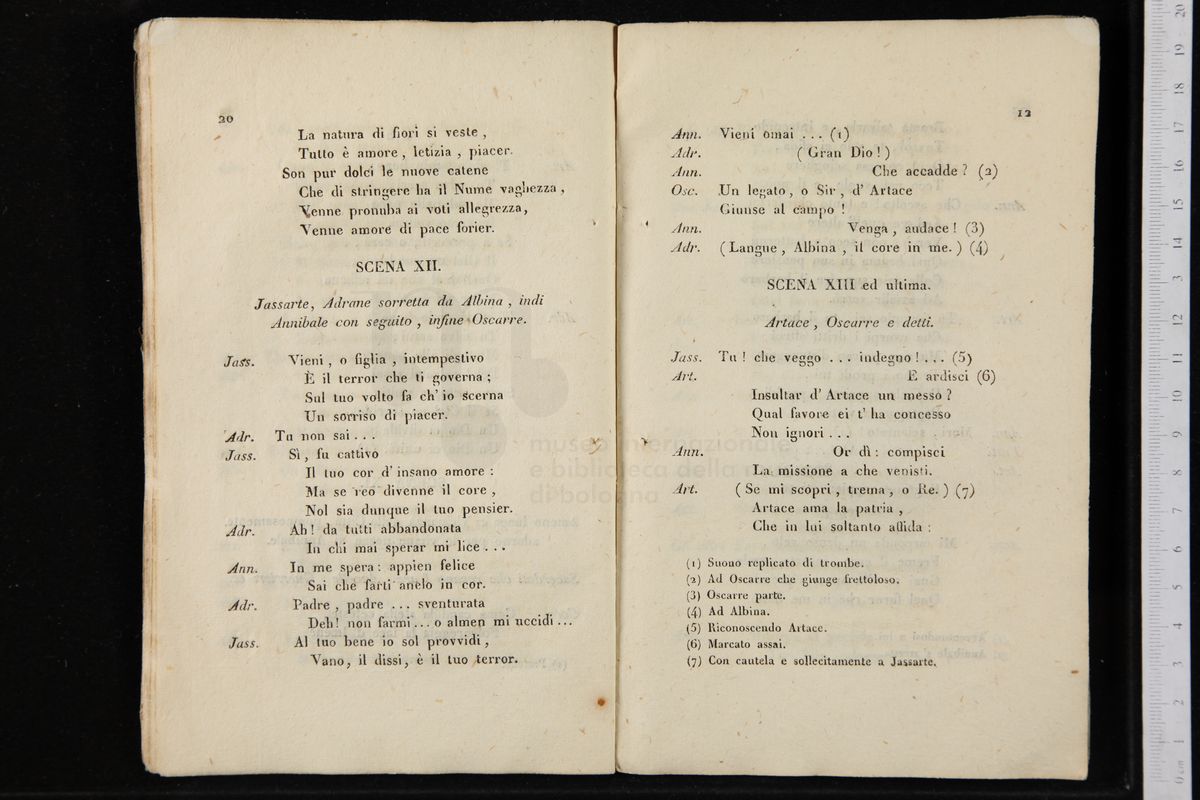 20
La natura di fiori si veste ,
Tutto è amore , letizia , piacer.
Son pur dolci le nuove catene
Che di stringere ha il Nume vaghezza ,
Venne pronuba ai voti allegrezza,
Venne amore di pace forier.
SCENA XII.
Jassarte, Adrane sorretta da Albina , indi
Annibale con seguito , infine Oscarre.
Jass. Vieni , o figlia , intempestivo
È il terror che ti governa ;
Sul tuo volto fa ch' io scerna
Un sorriso di piacer.
Adr. Tu non sai . . .
Jass. Sì , fu cattivo
Il tuo cor d' insano amore :
Ma se reo divenne il core ,
Nol sia dunque il tuo pensier.
Adr. Ah! da tutti abbandonata
In chi mai sperar mi lice . . .
Ann. In me spera : appien felice
Sai che farti anelo in cor.
Adr. Padre , padre . . . sventurata
Deh! non farmi . . . o almen mi uccidi . . .
Jass. Al tuo bene io sol provvidi ,
Vano, il dissi, è il tuo terror.
12
Ann. Vieni omai . . . (1)
Adr. ( Gran Dio ! )
Ann. Che accadde ? (2)
Osc. Un legato , o Sir , d' Artace
Giunse al campo !
Ann. Venga , audace ! (3)
Adr. ( Langue , Albina , il core in me. ) (4)
SCENA XIII ed ultima.
Artace , Oscarre e detti.
Jass. Tu ! che veggo . . . indegno ! . . . (5)
Art. E ardisci (6)
Insultar d' Artace un messo ?
Qual favore ei t' ha concesso
Non ignori . . .
Ann. Or dì : compisci
La missione a che venisti.
Art. ( Se mi scopri , trema , o Re. ) (7)
Artace ama la patria ,
Che in lui soltanto affida :
(1) Suono replicato di trombe.
(2) Ad Oscarre che giunge frettoloso.
(3) Oscarre parte.
(4) Ad Albina.
(5) Riconoscendo Artace.
(6) Marcato assai.
(7) Con cautela e sollecitamente a Jassarte.
museo internazionale
e biblioteca della
di bologna
0 cm 1 2 3 4 5 6 7 8 9 10 11 12 13 14 15 16 17 18 19 20